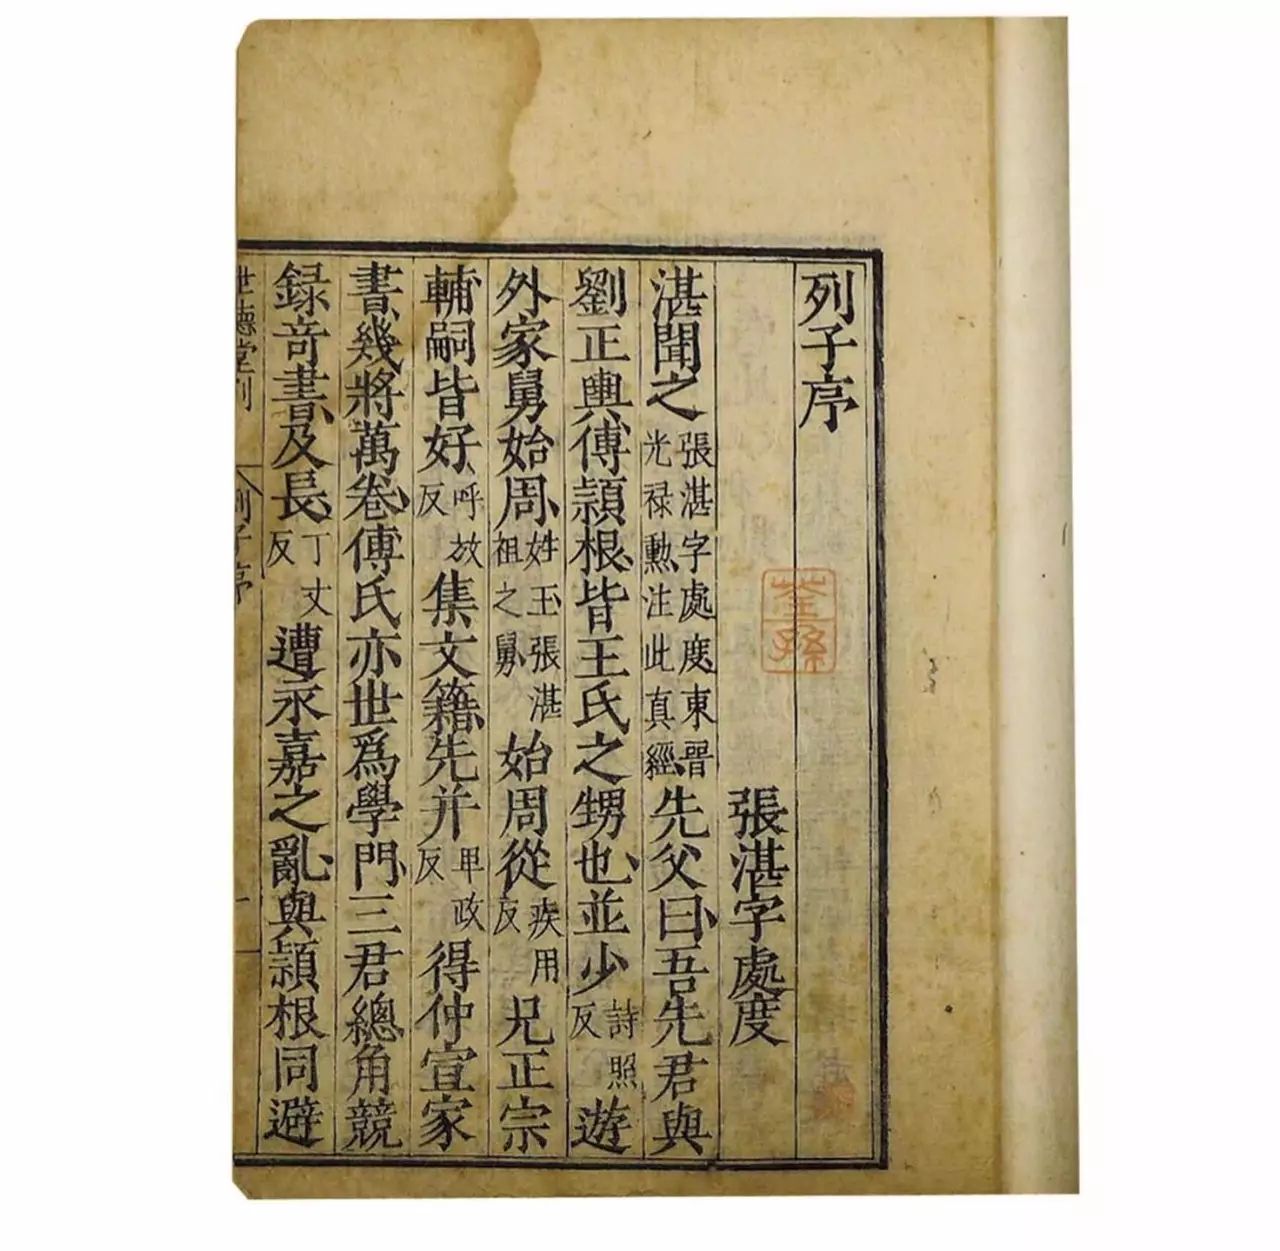 列子序
張湛字處度
湛聞之張湛字處度東晉光禄勲注此真經先父曰吾先君與
劉正輿傅頴根皆王氏之甥也並少詩照反遊
外家舅始周姓王張湛祖之舅始周從疾用反兄正宗
輔嗣皆好呼故反集文籍先并卑政反得仲宣家
書幾將萬卷傅氏亦世爲學門三君總角競
録竒書及長丁丈反遭永嘉之亂與頴根同避
世德堂刊
列子序
一
荃孫